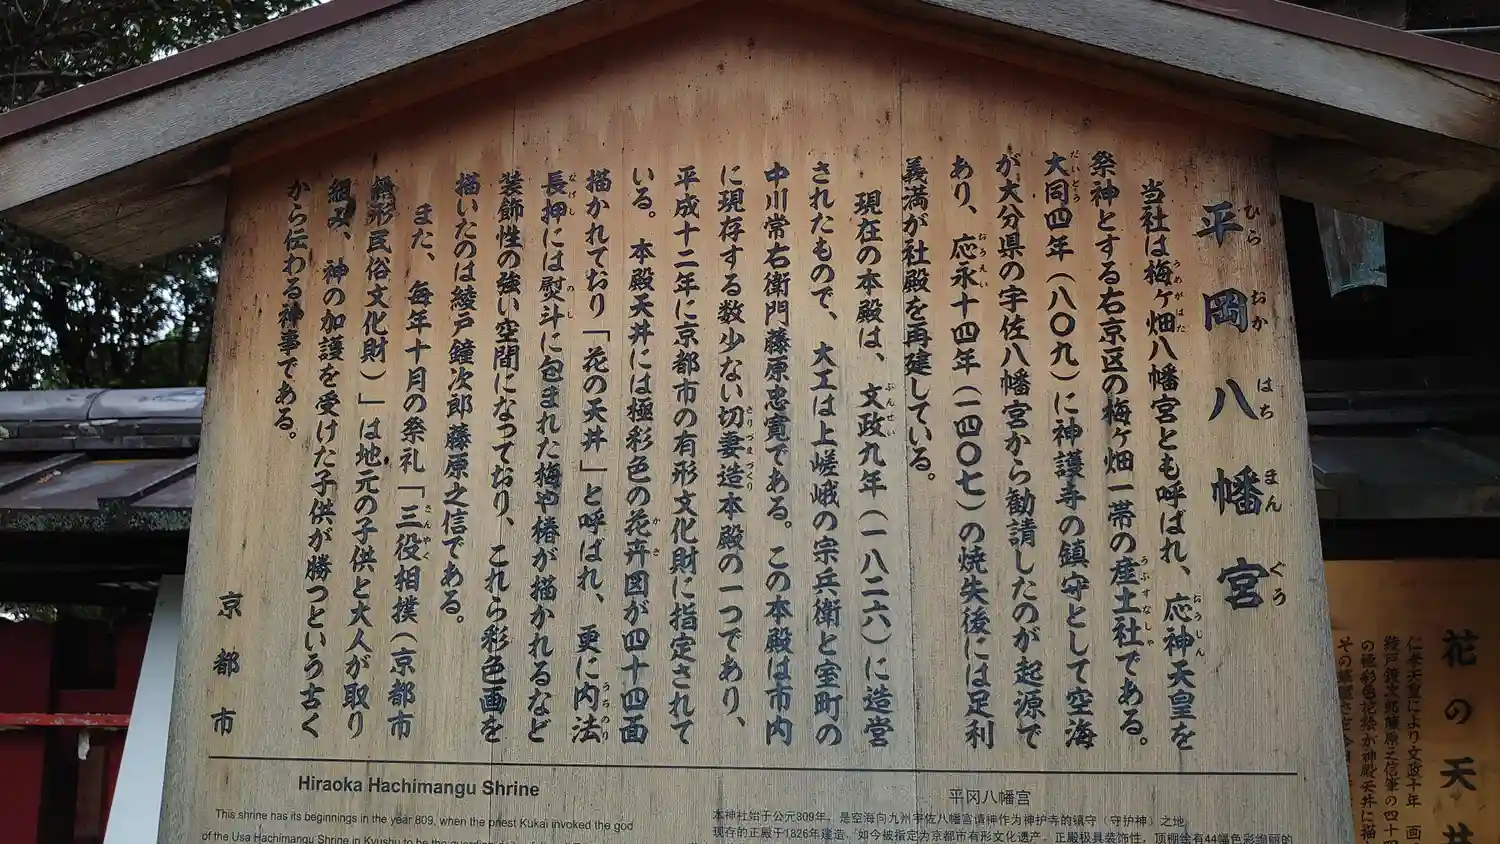 平岡八幡宮
ひらおかはちまんぐう
当社は梅ヶ畑八幡宮とも呼ばれ、応神天皇を
うめがはた おうじん
祭神とする右京区の梅ヶ畑一帯の産土社である。
うぶすなしゃ
大同四年(八〇九)に神護寺の鎮守として空海
だいどう
が大分県の宇佐八幡宮から勧請したのが起源で
あり、応永十四年(一四〇七)の焼失後には足利
おうえい
義満が社殿を再建している。
現在の本殿は、文政九年(一八二六)に造営
ぶんせい
されたもので、大工は上嵯峨の宗兵衛と室町の
中川常右衛門藤原忠寛である。この本殿は市内
に現存する数少ない切妻造本殿の一つであり、
きりづまづくり
平成十二年に京都市の有形文化財に指定されて
いる。本殿天井には極彩色の花卉図が四十四面
かき
描かれており「花の天井」と呼ばれ、更に内法
うちのり
長押には熨斗に包まれた梅や椿が描かれるなど
なげし のし
装飾性の強い空間になっており、これら彩色画を
描いたのは綾戸鐘次郎藤原之信である。
また、毎年十月の祭礼「三役相撲(京都市
さんやく
無形民俗文化財)」は地元の子供と大人が取り
組み、神の加護を受けた子供が勝つという古く
から伝わる神事である。
京都市
Hiraoka Hachimangu Shrine
This shrine has its beginnings in the year 809, when the priest Kukai invoked the god
of the Usa Hachimangu Shrine in Kyushu to be the guardian
平冈八幡宫
本神社始于公元809年，是空海向九州宇佐八幡宫请神作为神护寺的镇守（守护神）之地
现存的正殿于1826年建造，如今被指定为京都市有形文化遗产。正殿极具装饰性，顶棚绘有44幅色彩绚丽的
花の天井
仁孝天皇により文政十年 画
綾戸鐘次郎藤原之信筆の四十四
の極彩色花絵が神殿天井に描